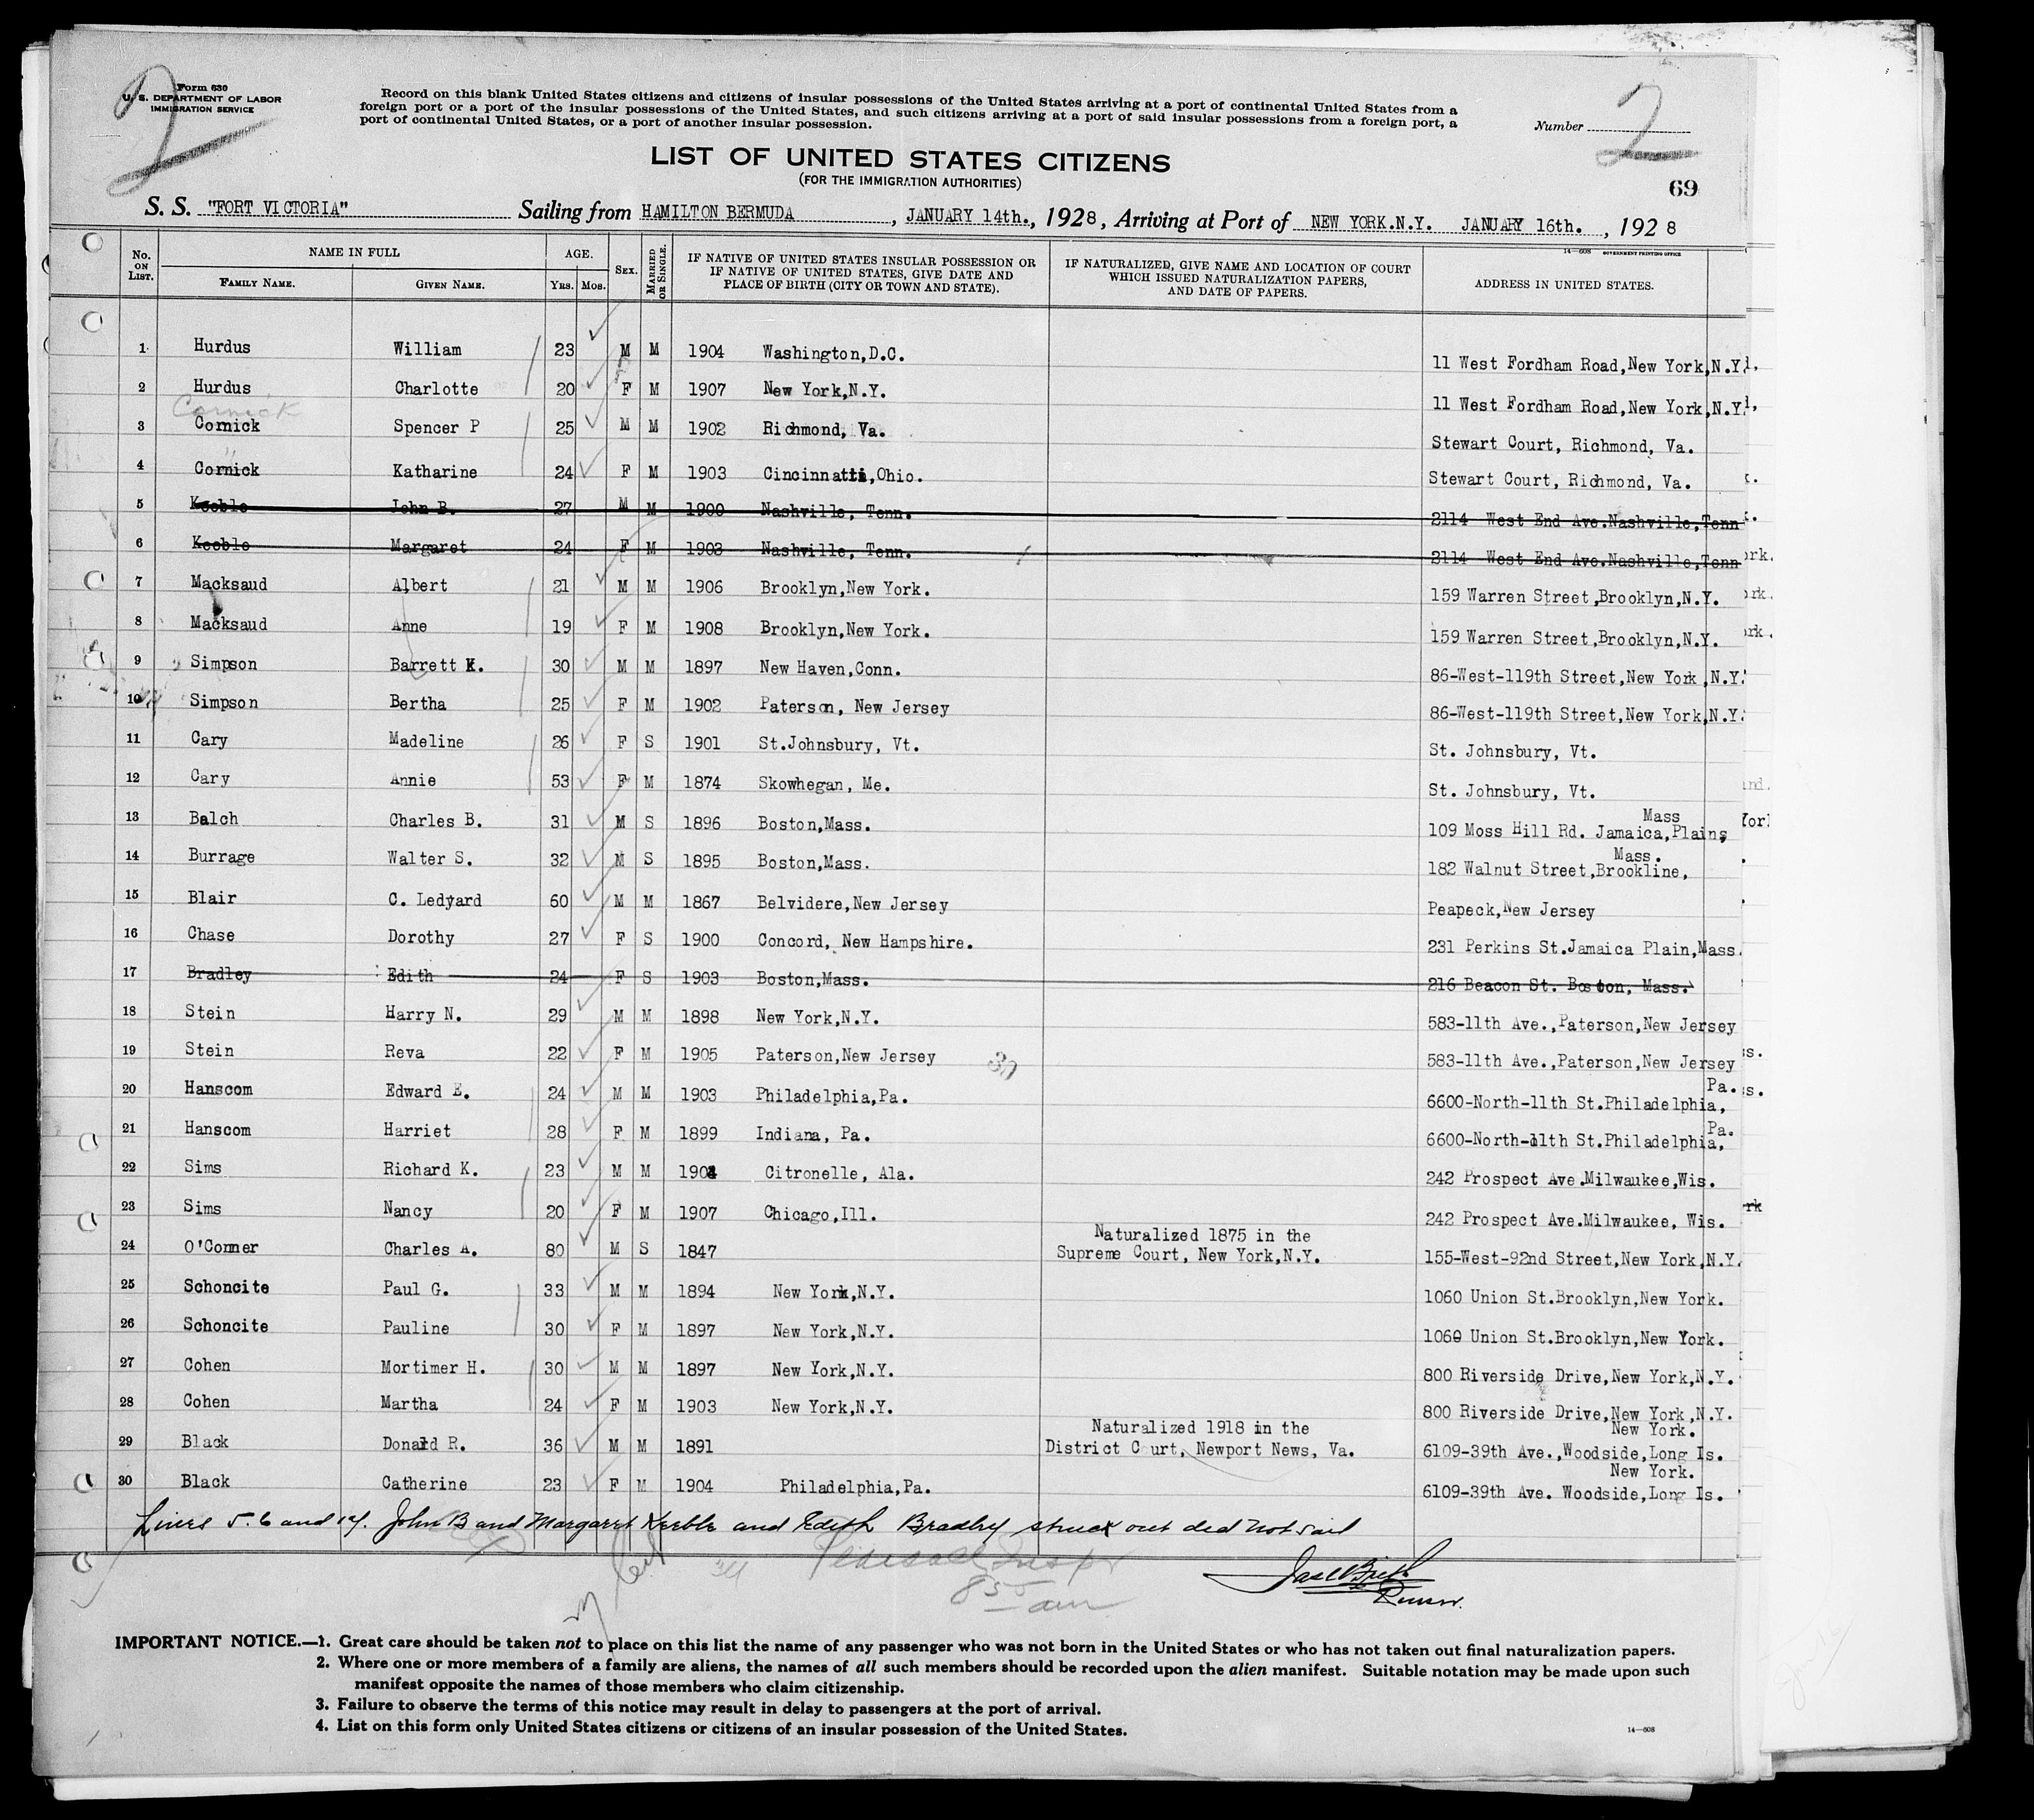 2
Form 630
U. S. DEPARTMENT OF LABOR
IMMIGRATION SERVICE
Record on this blank United States citizens and citizens of insular possessions of the United States arriving at a port of continental United States from a
foreign port or a port of the insular possessions of the United States, and such citizens arriving at a port of said insular possessions from a foreign port, a
port of continental United States, or a port of another insular possession.
Number
2
LIST OF UNITED STATES CITIZENS
(FOR THE IMMIGRATION AUTHORITIES)
69
S. S. "FORT VICTORIA" Sailing from HAMILTON BERMUDA, JANUARY 14th., 1928, Arriving at Port of NEW YORK.N.Y. JANUARY 16th., 1928
14—608 GOVERNMENT PRINTING OFFICE
No. ON LIST. NAME IN FULL FAMILY NAME. GIVEN NAME. AGE. YRS. MOS. SEX. MARRIED OR SINGLE. IF NATIVE OF UNITED STATES INSULAR POSSESSION OR IF NATIVE OF UNITED STATES, GIVE DATE AND PLACE OF BIRTH (CITY OR TOWN AND STATE). IF NATURALIZED, GIVE NAME AND LOCATION OF COURT WHICH ISSUED NATURALIZATION PAPERS, AND DATE OF PAPERS. ADDRESS IN UNITED STATES.
1 Hurdus William 23 M M 1904 Washington,D.C. 11 West Fordham Road,New York,N.Y.
2 Hurdus Charlotte 20 F M 1907 New York,N.Y. 11 West Fordham Road,New York,N.Y.
Cornick
3 Cornick Spencer P 25 M M 1902 Richmond, Va. Stewart Court, Richmond, Va.
"
4 Cornick Katharine 24 F M 1903 Cincinnatti,Ohio. Stewart Court, Richmond, Va.
5 Keeble John B. 27 M M 1900 Nashville, Tenn. 2114 West End Ave.Nashville,Tenn
6 Keeble Margaret 24 F M 1903 Nashville, Tenn. 2114 West End Ave.Nashville,Tenn
7 Macksaud Albert 21 M M 1906 Brooklyn,New York. 159 Warren Street,Brooklyn,N.Y.
8 Macksaud Anne 19 F M 1908 Brooklyn,New York. 159 Warren Street,Brooklyn,N.Y.
9 Simpson Barrett K. 30 M M 1897 New Haven,Conn. 86-West-119th Street,New York,N.Y.
10 Simpson Bertha 25 F M 1902 Paterson, New Jersey 86-West-119th Street,New York,N.Y.
11 Cary Madeline 26 F S 1901 St.Johnsbury, Vt. St. Johnsbury, Vt.
12 Cary Annie 53 F M 1874 Skowhegan, Me. St. Johnsbury, Vt.
13 Balch Charles B. 31 M S 1896 Boston,Mass. 109 Moss Hill Rd. Jamaica,Plains Mass
14 Burrage Walter S. 32 M S 1895 Boston,Mass. 182 Walnut Street,Brookline, Mass.
15 Blair C. Ledyard 60 M M 1867 Belvidere,New Jersey Peapeck,New Jersey
16 Chase Dorothy 27 F S 1900 Concord, New Hampshire. 231 Perkins St.Jamaica Plain,Mass.
17 Bradley Edith 24 F S 1903 Boston,Mass. 216 Beacon St. Boston, Mass.
18 Stein Harry N. 29 M M 1898 New York,N.Y. 583-11th Ave.,Paterson,New Jersey
19 Stein Reva 22 F M 1905 Paterson,New Jersey 583-11th Ave.,Paterson,New Jersey
20 Hanscom Edward E. 24 M M 1903 Philadelphia,Pa. 6600-North-11th St.Philadelphia, Pa.
21 Hanscom Harriet 28 F M 1899 Indiana, Pa. 6600-North-11th St.Philadelphia, Pa.
22 Sims Richard K. 23 M M 1904 Citronelle, Ala. 242 Prospect Ave.Milwaukee,Wis.
23 Sims Nancy 20 F M 1907 Chicago,Ill. 242 Prospect Ave.Milwaukee, Wis.
24 O'Conner Charles A. 80 M S 1847 Naturalized 1875 in the Supreme Court, New York,N.Y. 155-West-92nd Street,New York,N.Y.
25 Schoncite Paul G. 33 M M 1894 New York,N.Y. 1060 Union St.Brooklyn,New York.
26 Schoncite Pauline 30 F M 1897 New York,N.Y. 1060 Union St.Brooklyn,New York.
27 Cohen Mortimer H. 30 M M 1897 New York,N.Y. 800 Riverside Drive,New York,N.Y.
28 Cohen Martha 24 F M 1903 New York,N.Y. 800 Riverside Drive,New York,N.Y.
29 Black Donald R. 36 M M 1891 Naturalized 1918 in the District Court, Newport News, Va. 6109-39th Ave.,Woodside,Long Is. New York.
30 Black Catherine 23 F M 1904 Philadelphia,Pa. 6109-39th Ave. Woodside,Long Is. New York.
Lines 5. 6 and 17. John B and Margaret Keeble and Edith Bradley struck out did not sail
Inspr
8 35 am
Purser.
IMPORTANT NOTICE.—1. Great care should be taken not to place on this list the name of any passenger who was not born in the United States or who has not taken out final naturalization papers.
2. Where one or more members of a family are aliens, the names of all such members should be recorded upon the alien manifest. Suitable notation may be made upon such
manifest opposite the names of those members who claim citizenship.
3. Failure to observe the terms of this notice may result in delay to passengers at the port of arrival.
4. List on this form only United States citizens or citizens of an insular possession of the United States.
14—608